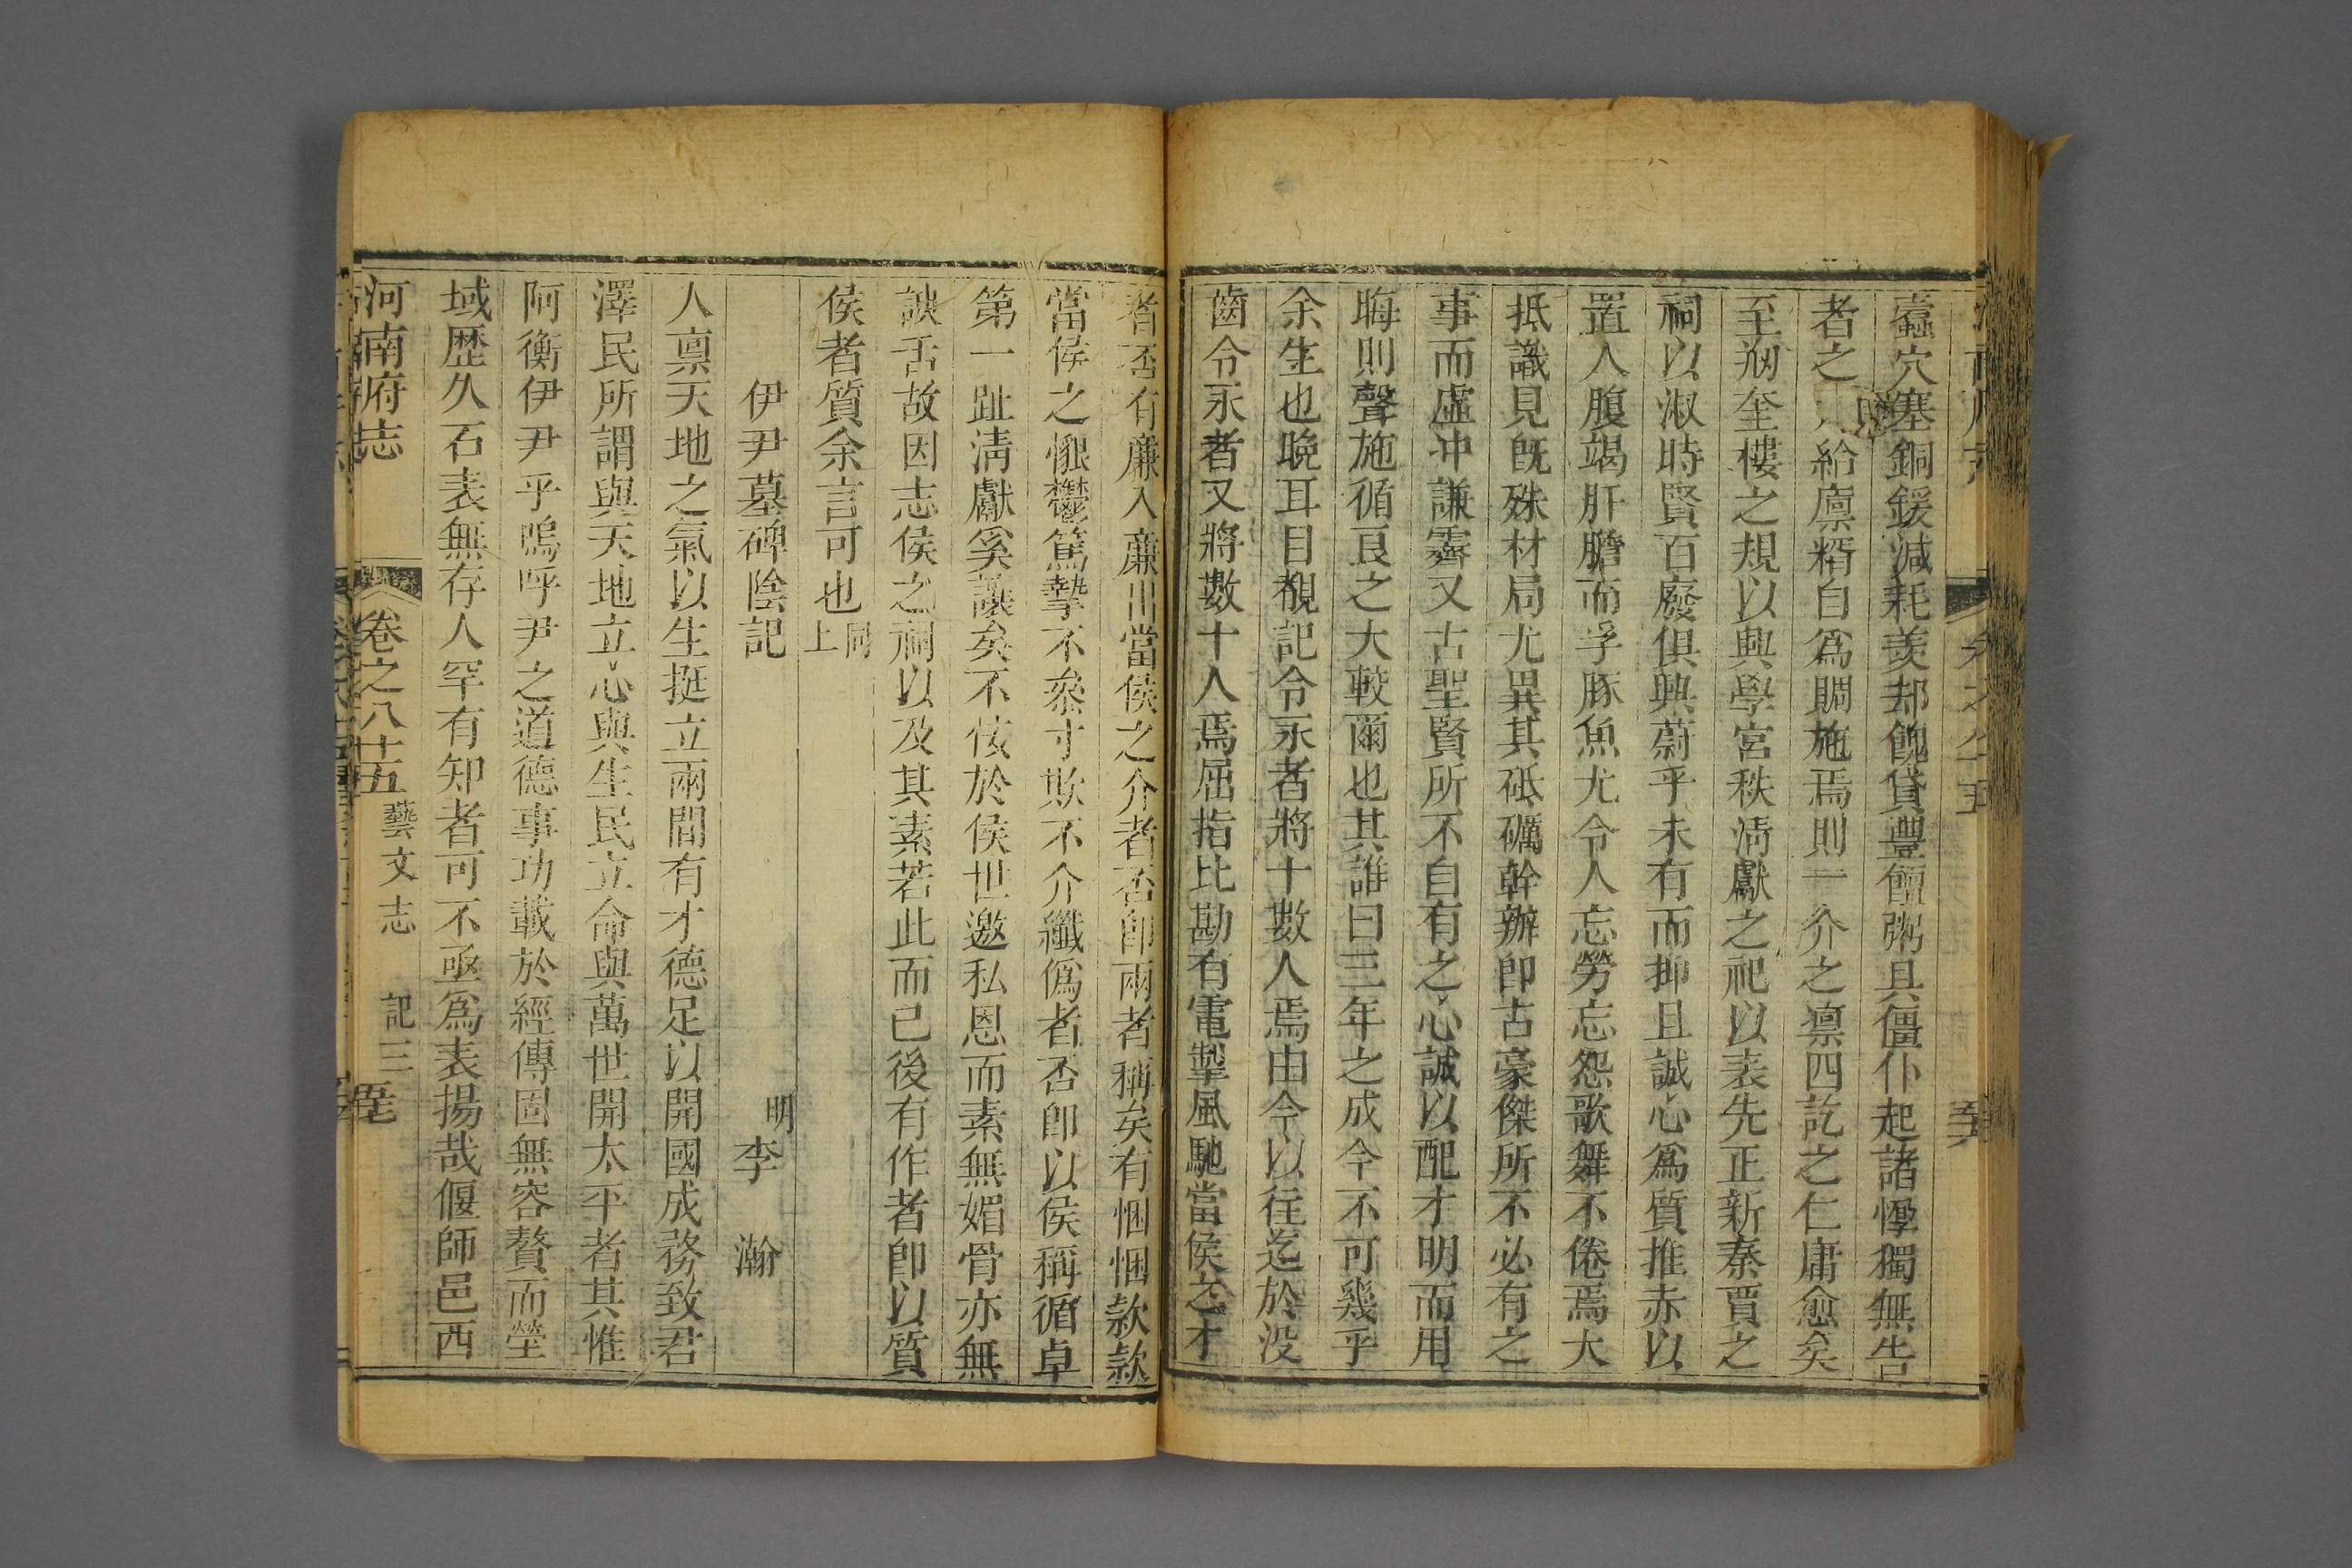 蠧穴塞銅鍰減耗羨却餽貸豐饘粥具僵仆起諸惸獨無告
者之 給廪糈自爲賙施焉則一介之凛四訖之仁庸愈矣
至剏奎樓之規以興學宮秩淸獻之祀以表先正新秦賈之
祠以淑時賢百廢俱興蔚乎未有而抑且誠心爲質推赤以
置人腹竭肝膽而孚豚魚尤令人忘勞忘怨歌舞不倦焉大
抵識見旣殊材局尤異其砥礪幹辦卽古豪傑所不必有之
事而虛冲謙霽又古聖賢所不自有之心誠以配才明而用
晦則聲施循良之大較爾也其誰曰三年之成今不可幾乎
余生也晚耳目覩記令永者將十數人焉由今以往迄於没
齒令永者又將數十人焉屈指比勘有電掣風馳當侯之才
者否有廉入廉出當侯之介者否卽兩者稱矣有悃悃款款
當侯之懇鬱篤摯不叅寸欺不介纖僞者否卽以侯稱循卓
第一趾淸獻奚讓矣不佞於侯世邀私恩而素無媚骨亦無
諛舌故因志侯之祠以及其素若此而已後有作者卽以質
侯者質余言可也同上
伊尹墓碑陰記
明李瀚
人禀天地之氣以生挺立兩間有才德足以開國成務致君
澤民所謂與天地立心與生民立命與萬世開太平者其惟
阿衡伊尹乎嗚呼尹之道德事功載於經傳固無容贅而塋
域歴久石表無存人罕有知者可不亟爲表揚哉偃師邑西
河南府志 卷之八十五 藝文志 記三